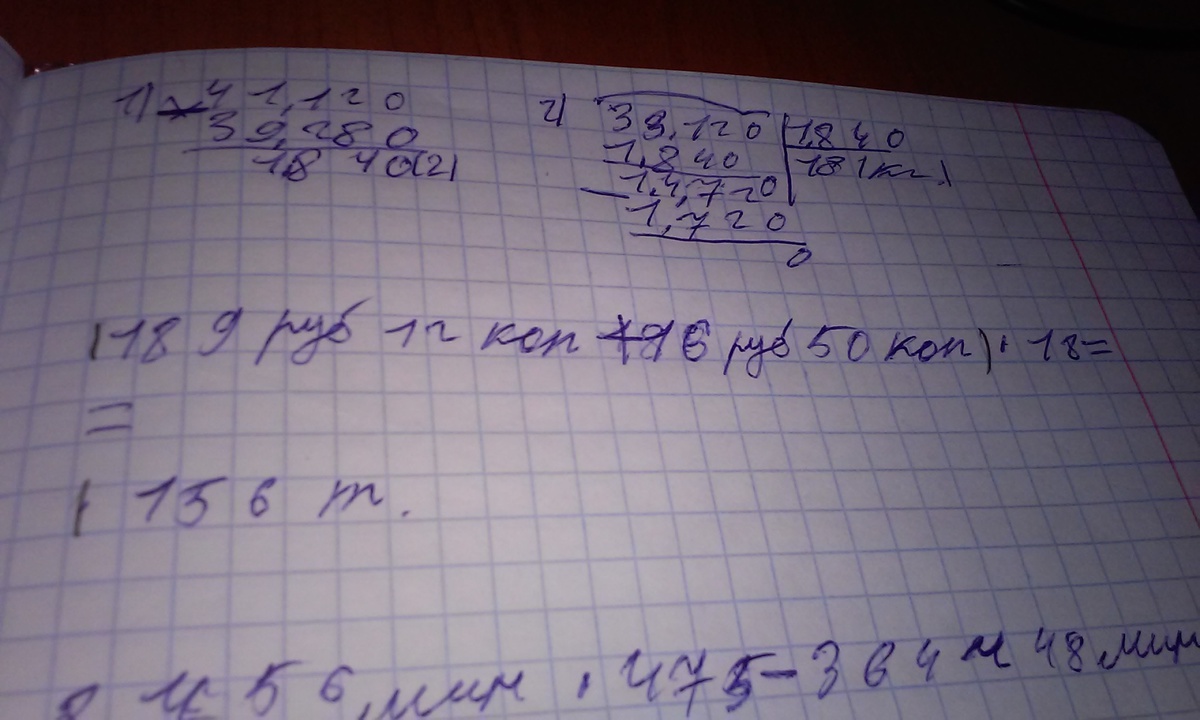 1) 41,120
39,280
1,840(г)
2) 33,120 1,840
1,840 18(кг)
14,720
1,720
0
(189 руб 12 коп + 96 руб 50 коп) · 18=
=
( 156 т.
8 ч 56 мин · 475 - 364 ч 48 мин